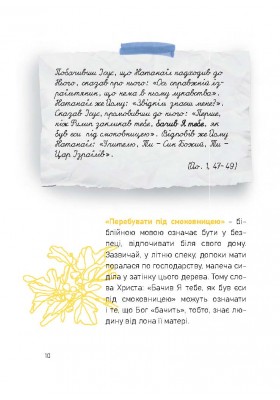 Побачивши Ісус, що Натанаїл надходив до
Нього, сказав про нього: «Ось справжній із-
раїльтянин, що нема в ньому лукавства».
Натанаїл же Йому: «Звідкіля знаєш мене?».
Сказав Ісус, промовивши до нього: «Перше,
ніж Филип закликав тебе, бачив Я тебе, як
був єси під смоковницею». Відповів же Йому
Натанаїл: «Учителю, Ти – Син Божий, Ти –
Цар Ізраїлів».
(Йо. 1, 47-49)
«Перебувати під смоковницею» – бі-
блійною мовою означає бути у без-
пеці, відпочивати біля свого дому.
Зазвичай, у літню спеку, допоки мати
поралася по господарству, малеча си-
діла у затінку цього дерева. Тому сло-
ва Христа: «Бачив Я тебе, як був єси
під смоковницею» можуть означати
і те, що Бог «бачить», тобто, знає лю-
дину від лона її матері.
10